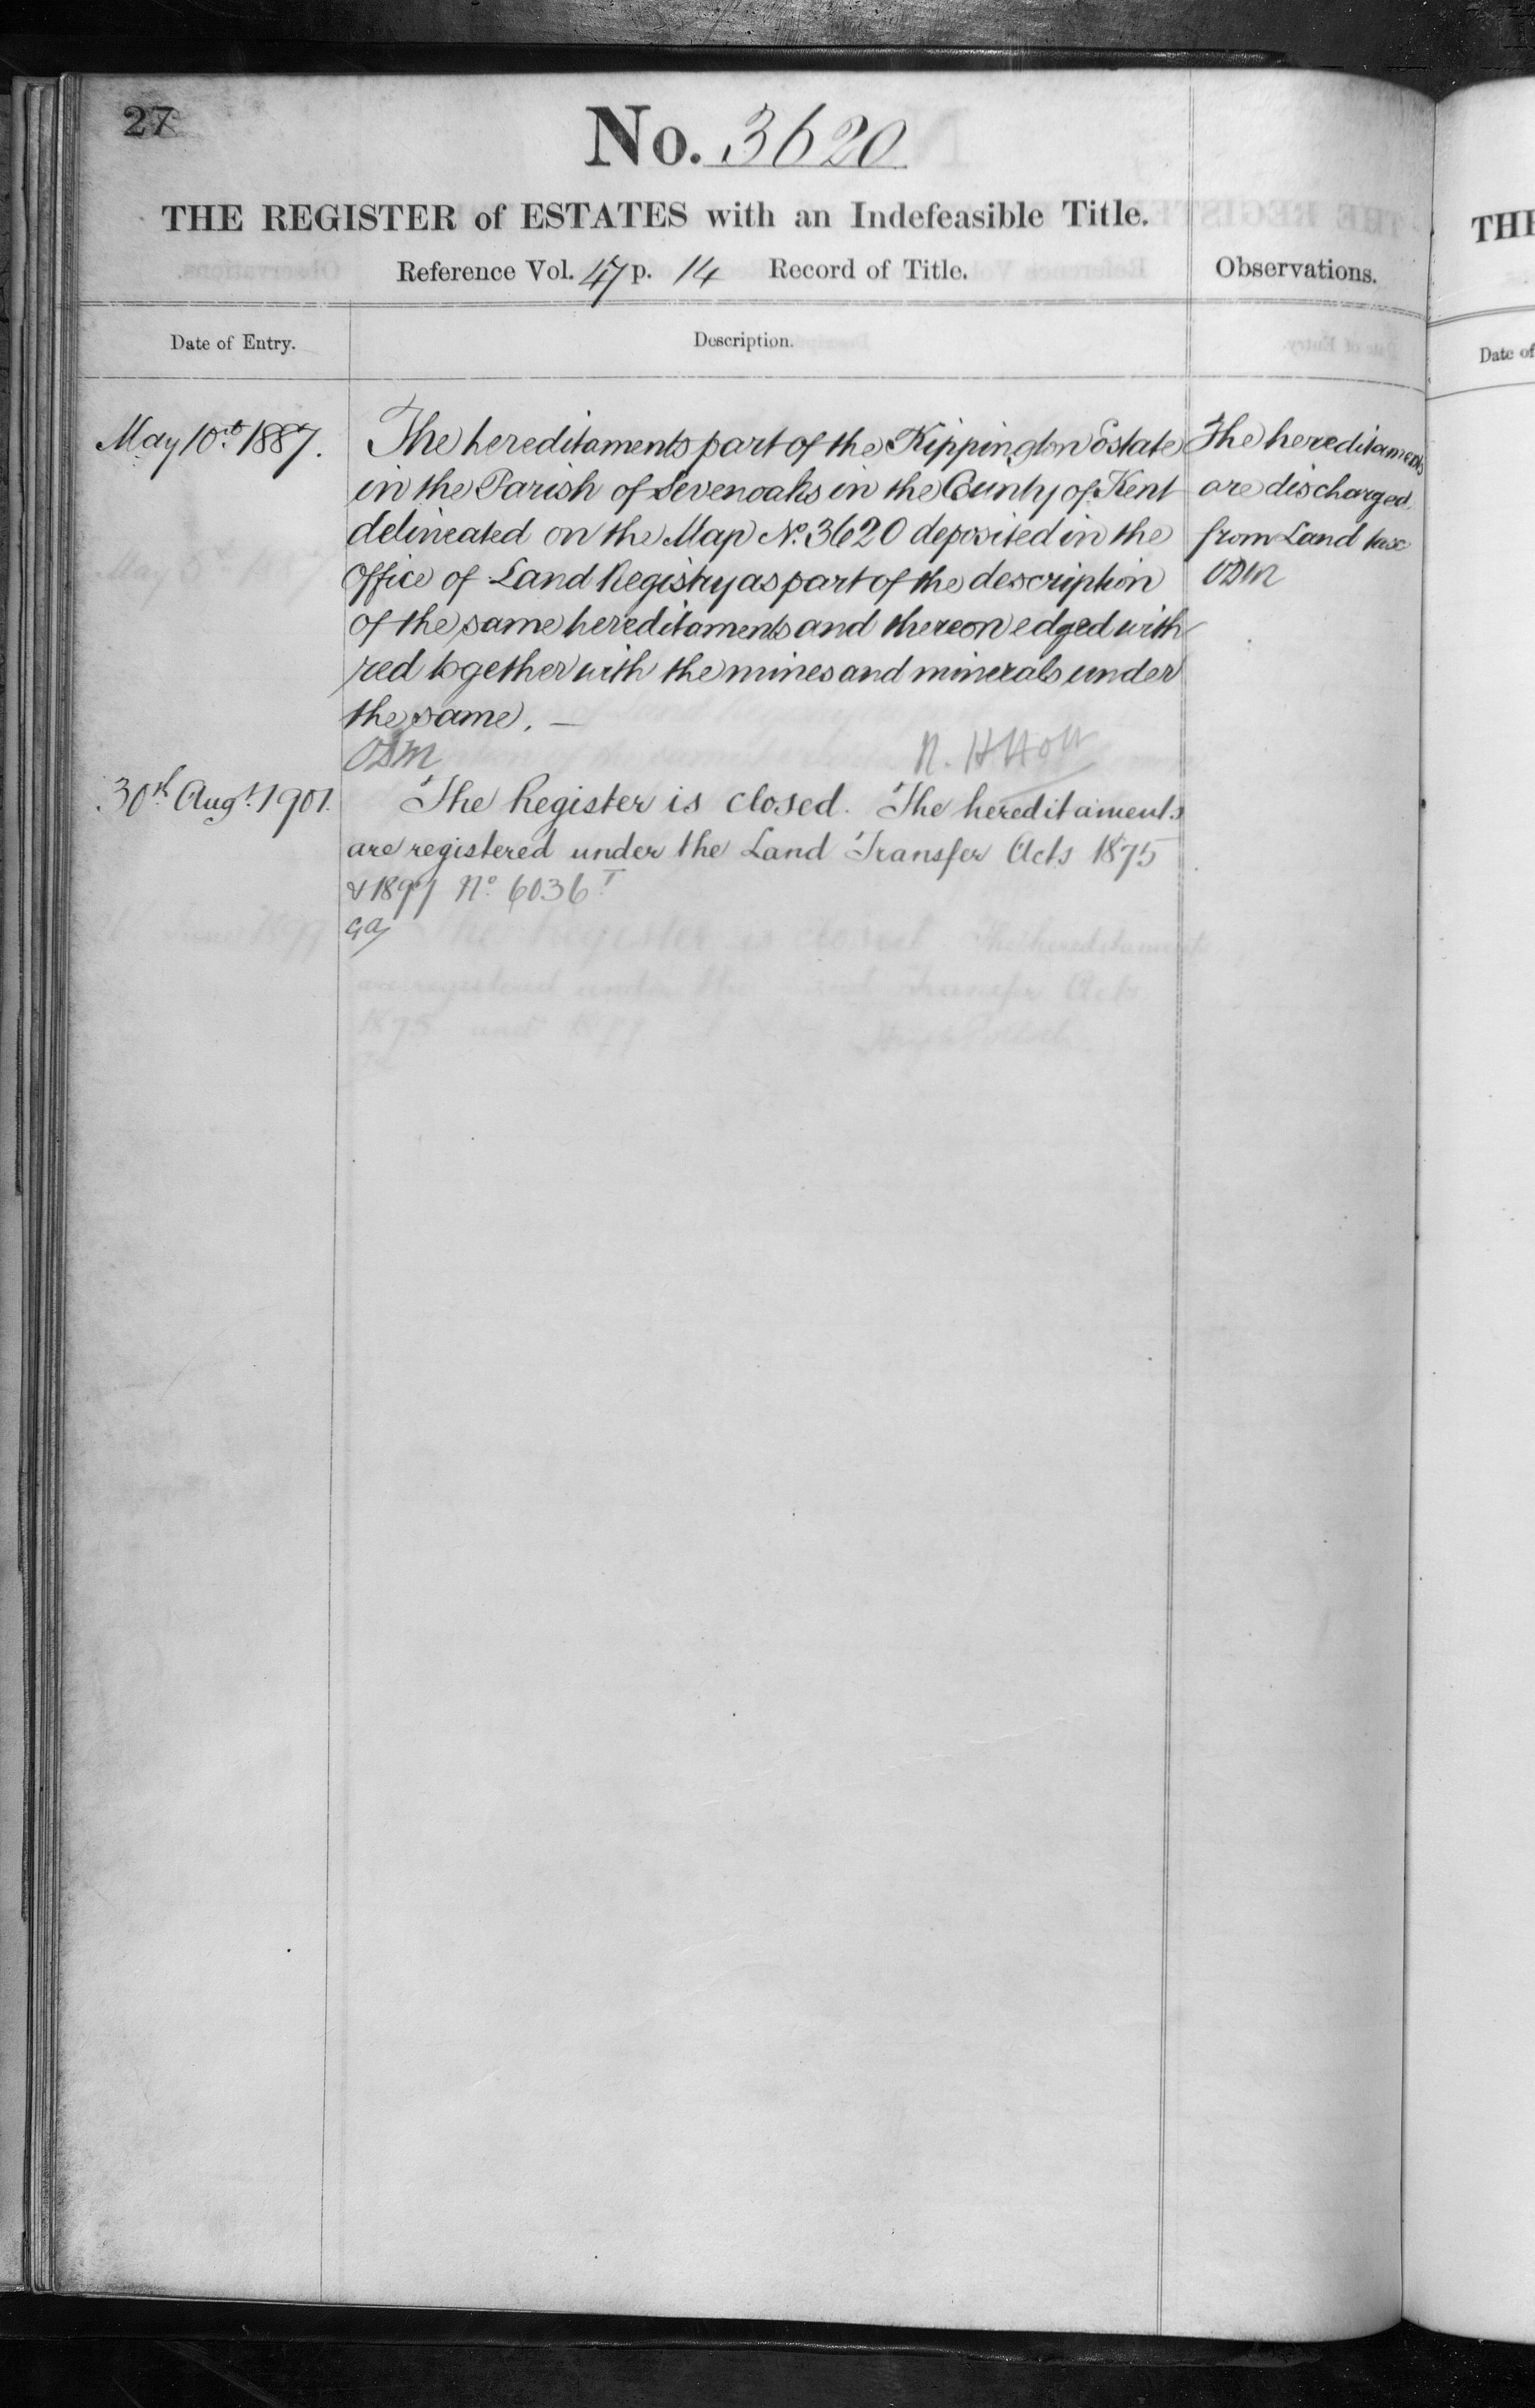 27
No. 3620
THE REGISTER of ESTATES with an Indefeasible Title.
Reference Vol. 47 p. 14 Record of Title.
Observations.
Date of Entry.
Description.
May 10th 1887.
The hereditaments part of the Kippington Estate
in the Parish of Sevenoaks in the County of Kent
delineated on the Map No. 3620 deposited in the
Office of Land Registry as part of the description
of the same hereditaments and thereon edged with
red together with the mines and minerals under
the same. —
ODM
R. H Holt
The hereditaments
are discharged
from Land tax
ODM
30th Augt. 1901.
The Register is closed. The hereditaments
are registered under the Land Transfer Acts 1875
& 1897 No. 6036 T
GA
THE
Date of